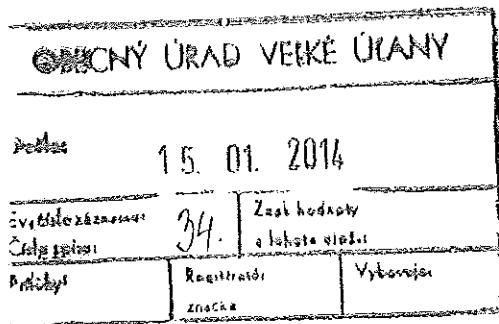 OBECNÝ ÚRAD VEĽKÉ ÚĽANY
Došlo:
15. 01. 2014
Ev. číslo záznamu:
Číslo spisu:
34.
Znak hodnoty
a lehota ulož.:
Prílohy:
Registrat.
značka
Vybavuje: